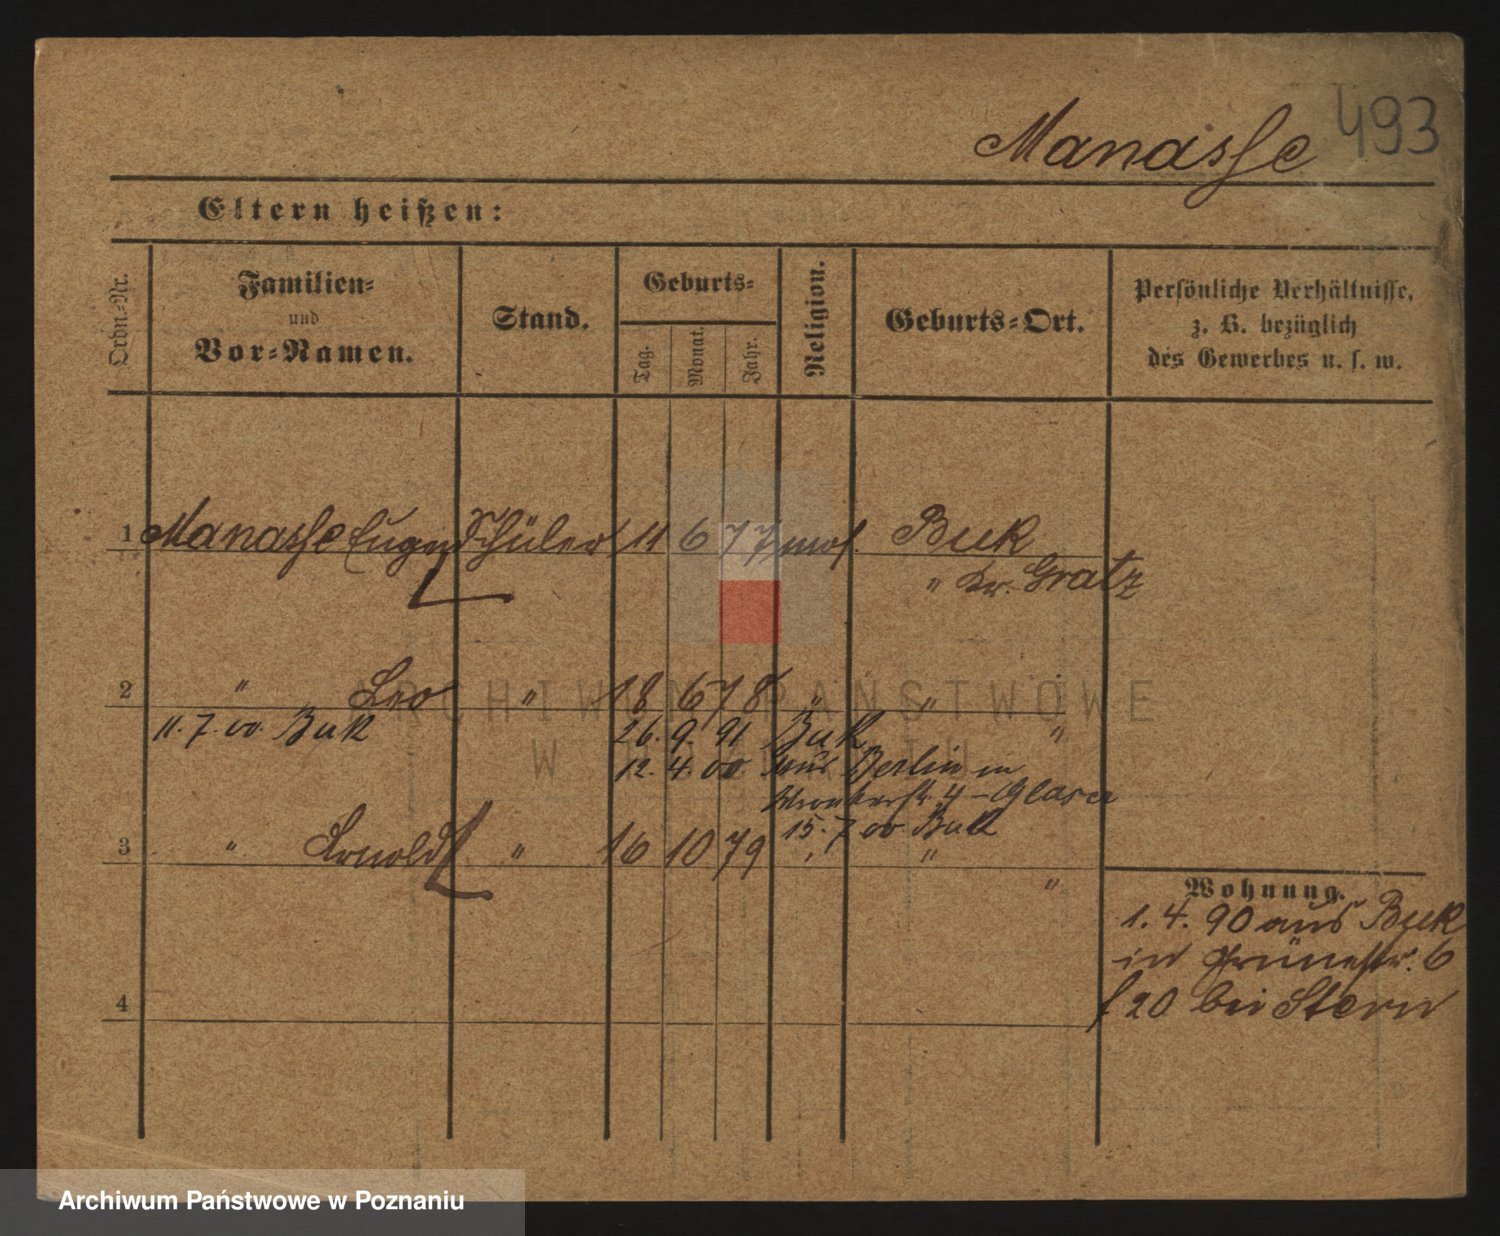 Manasse 493
Eltern heißen:
Ordn.-Nr.
Familien-
und
Vor-Namen.
Stand.
Geburts-
Tag.
Monat.
Jahr.
Religion.
Geburts-Ort.
Persönliche Verhältnisse,
z. B. bezüglich
des Gewerbes u. s. w.
1 Manasse Eugen Schüler 11 6 77 mos. Buk
" Kr. Gratz
2 " Leo " 18 6 78 " "
11. 7. 00. Buk 26. 9. 91 Buk "
12. 4. 00. aus Berlin in
Wronkerstr. 4 - Glaser
15. 7 00 Buk
3 " Arnold " 16 10 79 " "
"
Wohnung.
1. 4. 90 aus Buk
in Grünestr. 6
f 20 bei Stern
4
ARCHIWUM PAŃSTWOWE
W POZNANIU
Archiwum Państwowe w Poznaniu